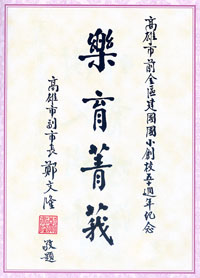 高雄市前金區建國國小創校五十週年紀念
樂育菁莪
高雄市副市長 鄭文隆
敬題